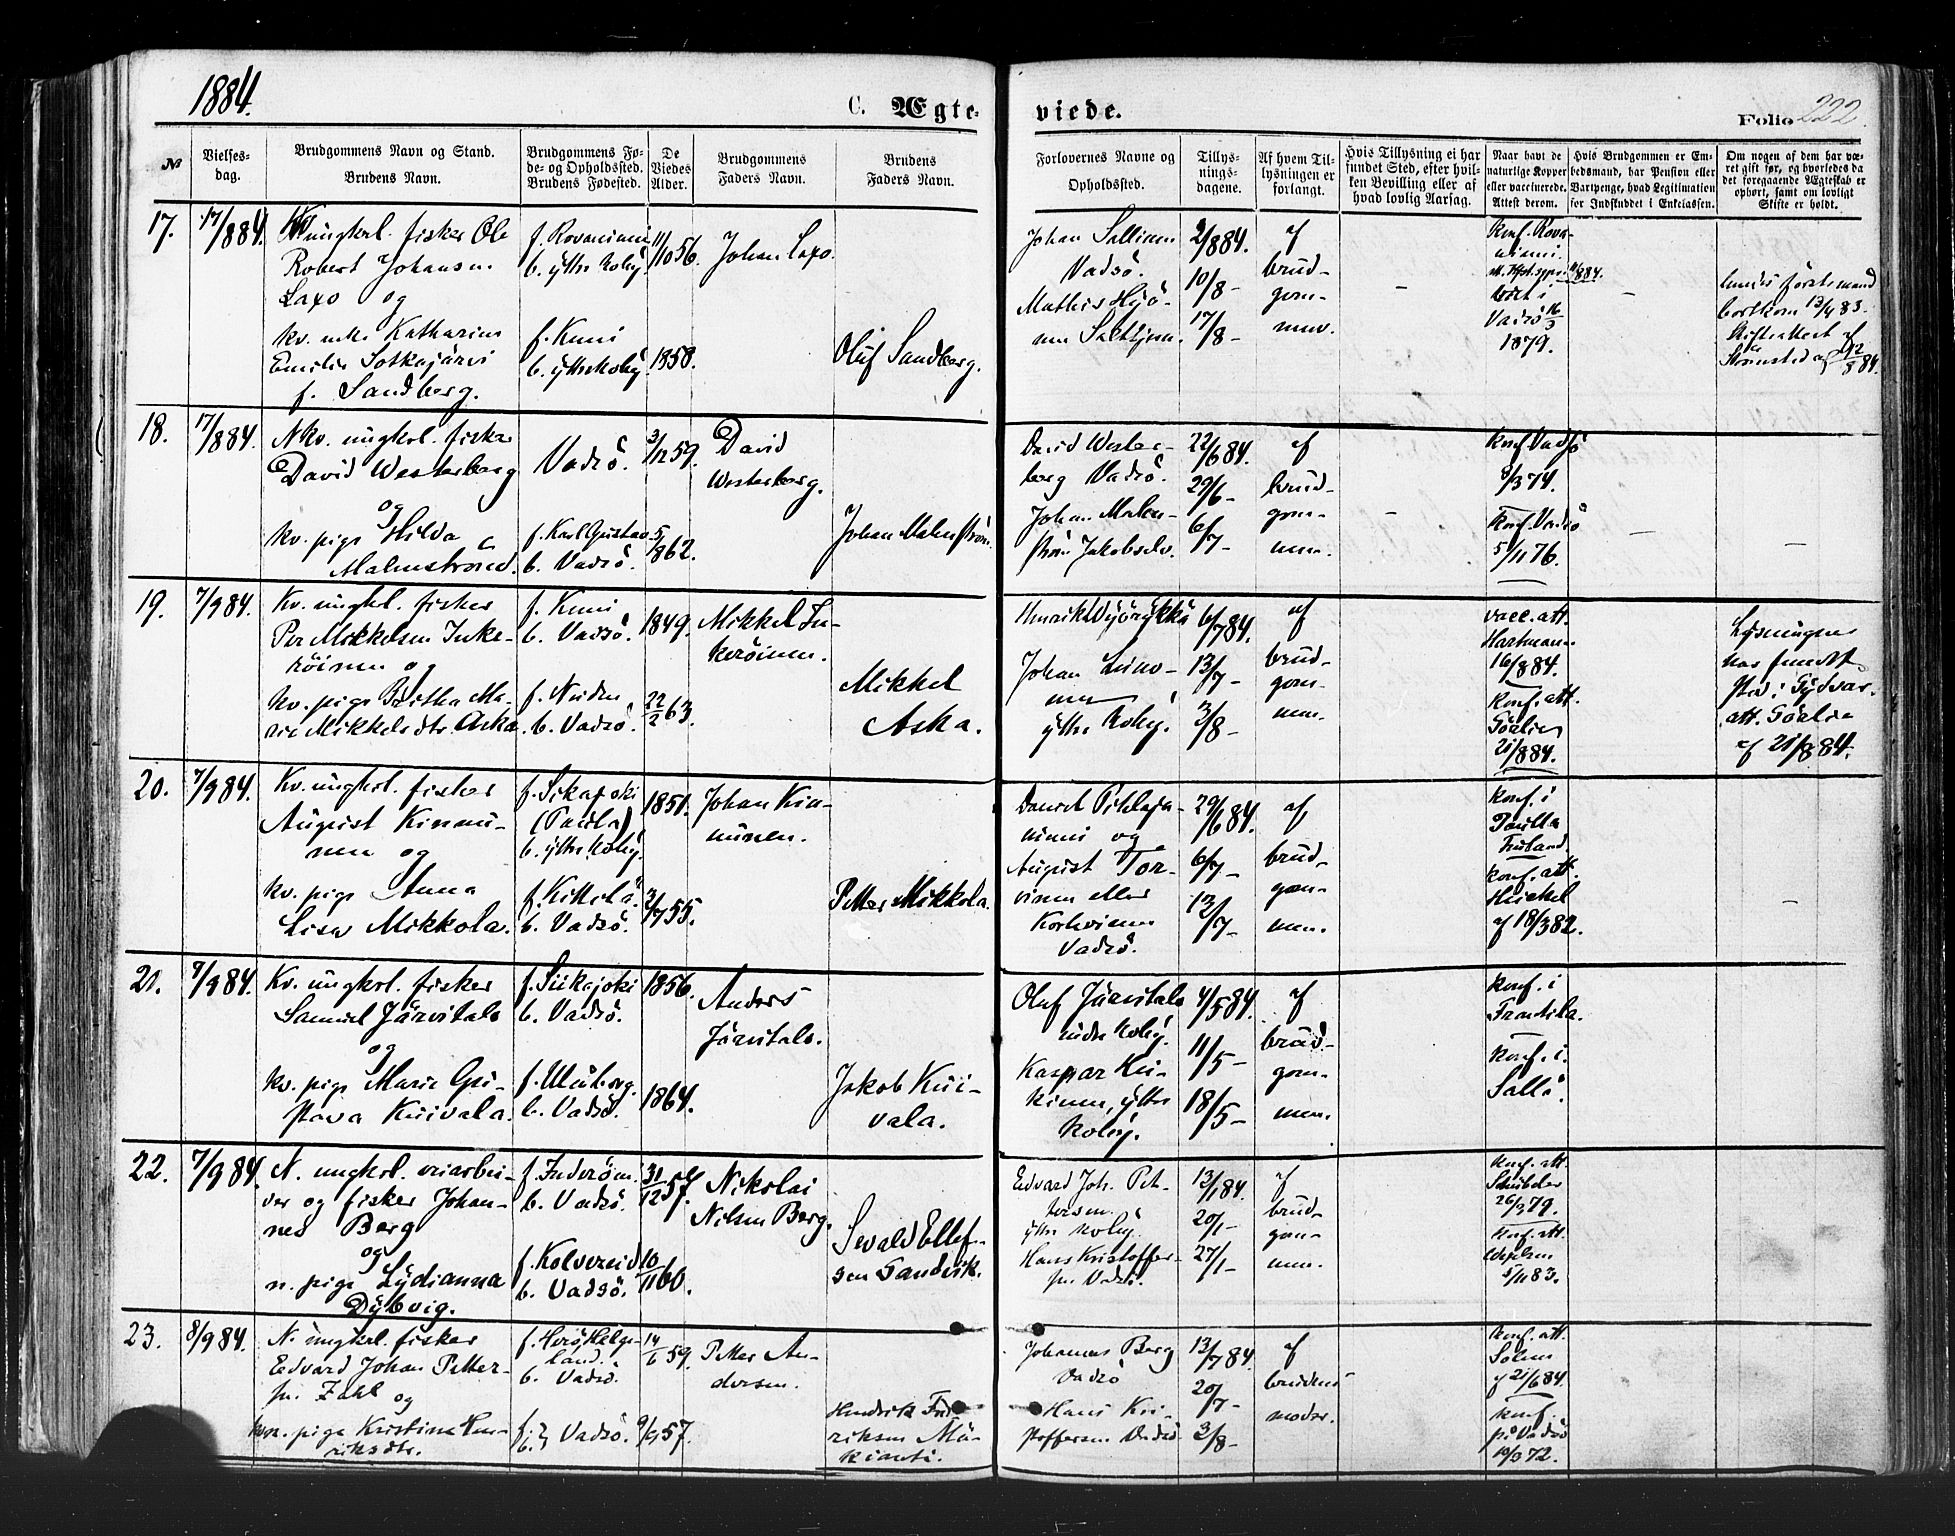 1884.
C. Ægte-
viede.
Folio 222.
№
Vielses-
dag.
Brudgommens Navn og Stand.
Brudens Navn.
Brudgommens Fø-
de- og Opholdssted.
Brudens Fødested.
De
Viedes
Alder.
Brudgommens
Faders Navn.
Brudens
Faders Navn.
Forlovernes Navne og
Opholdssted.
Tillys-
nings-
dagene.
Af hvem Til-
lysningen er
forlangt.
Hvis Tillysning ei har
fundet Sted, efter hvil-
ken Bevilling eller af
hvad lovlig Aarsag.
Naar havt de
naturlige Kopper
eller vaccinerede.
Attest derom.
Hvis Brudgommen er Em-
bedsmand, har Pension eller
Vartpenge, hvad Legitimation
for Indskuddet i Enkekassen.
Om nogen af dem har væ-
ret gift før, og hvorledes da
det foregaaende Ægteskab er
ophørt, samt om lovligt
Skifte er holdt.
17.
17/8 84.
Kv ungkrl. fisker Ole
Robert Johansen
Laxo og
kv. enke Katharina
Emilie Sotkajärvi
f. Sandberg.
f. Rovaniemi
b. ytre Kobÿ.
f. Kemi
b. ÿttre Kobÿ.
11/10 56.
1858.
Johan Laxo.
Oluf Sandberg.
Johan Sallinen
Vadsö.
2/8 84.
10/8 -
17/8 -
af
brud-
gom-
men.
-
Konf. Rova-
niemi.
11/8 84.
Vadsö 16/3
1879.
-
bortkom 13/4 83.
Skifteattest af
18.
17/8 84.
N kv. ungkrl. fisker
David Westerberg
og
kv. pige Hilda
Malmstrøm.
Vadsö.
f. Karl Gustav
b. Vadsö.
3/12 59.
5/8 62.
David
Westerberg.
Johan Malmström.
David Wester-
berg Vadsö.
Johan Malm-
ström Jakobselv.
22/6 84.
29/6 -
6/7 -
af
brud-
gom-
men.
-
Konf. Vadsö
8/3 74.
Konf. Vadsö
5/11 76.
-
-
19.
7/9 84.
Kv. ungkrl. fisker
Per Mikkelsen Inke-
röinen og
kv. pige Britha Ma-
rie Mikkelsdtr. Aska
f. Kemi
b. Vadsö.
f. Neiden
b. Vadsö.
1849.
22/2 63.
Mikkel In-
keröinen.
Mikkel
Aska.
Johan Leino-
nen
ÿttre Kobÿ.
6/7 84.
13/7 -
3/8 -
af
brud-
gom-
men.
vacc. att.
Hartmann
16/8 84.
Konf. att.
21/8 84.
Lysningen
har fundet
sted i Sydvar.
att.
af 21/8 84.
20.
7/9 84.
Kv. ungkrl. fisker
August Kinnu-
nen og
kv. pige Anna
Lisa Mikkola.
f. Sikajoki
(Pavila)
b. ÿttre Kobÿ.
f. Kittilä.
b. Vadsö.
1851.
2/7 55.
Johan Kin-
nunen.
Petter Mikkola.
Daniel Pihlaja-
niemi og
August Tor-
vinen eller
Korhvinen
Vadsö.
29/6 84.
6/7 -
13/7 -
af
brud-
gom-
men.
Konf. i
Pavilla
Finland.
Konf. att.
af 18/3 82.
-
21.
7/9 84.
Kv. ungkrl. fisker
Samuel Järvitalo
og
kv. pige Maria Gu-
stava Kuivala.
f. Siikajoki
b. Vadsö.
f. Uleåborg.
b. Vadsö.
1856.
1864.
Anders
Järvitalo.
Jakob Kui-
vala.
Oluf Järvitalo
indre Kobÿ.
Kaspar Kei-
kinen, ÿttre
Kobÿ.
4/5 84.
11/5 -
18/5 -
af
brud-
gom-
men.
Konf. i
Frantsila.
Konf. i.
Sallo.
22.
7/9 84.
N. ungkrl. veiarbei-
der og fisker Johan-
nes Berg
og
n. pige Lydianna
Dybvig.
f. Inderøen.
b. Vadsö.
f. Kolvereid
b. Vadsö.
31/12 57.
10/11 60.
Nikolai
Nilsen Berg.
Sevald Ellef-
sen Sandvik.
Edvard Joh. Pet-
tersen.
ÿttre Kobÿ.
Hans Kristoffer-
sen Vadsö.
13/1 84.
20/1 -
27/1 -
af
brud-
gom-
men.
Konf. att.
Schübeler
26/3 79.
Konf. att.
5/11 83.
23.
8/9 84.
N. ungkrl. fisker
Edvard Johan Petter-
sen Zahl og
kvn. pige Kristina Hen-
riksdtr.
f. Herö Helge-
land.
b. Vadsö.
f. & b. Vadsö.
14/1 59.
9/9 57.
Petter An-
dersen.
Hendrik Fred-
riksen Mä-
kianti.
Johannes Berg
Vadsö
Hans Kri-
stoffersen Vadsö
13/7 84.
20/7 -
3/8 -
af
brudens
moder.
Konf. att.
Solem
af 21/6 84.
Konf.
på Vadsö
10/3 72.